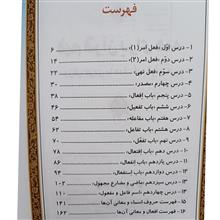 فهرست
۱- درس اوّل، «فعل امر (۱)» ۶
۲- درس دوّم، «فعل امر (۲)» ۱۴
۳- درس سوّم، «فعل نهی» ۲۲
۴- درس چهارم «مصدر» ۳۰
۵- درس پنجم «باب إفعال» ۳۸
۶- درس ششم «باب تفعیل» ۴۶
۷- درس هفتم «باب مفاعله» ۵۴
۸- درس هشتم «باب تفاعل» ۶۲
۹- درس نهم «باب تفعّل» ۷۰
۱۰- درس دهم «باب إفتعال» ۷۸
۱۱- درس یازدهم «باب إنفعال» ۸۶
۱۲- درس دوازدهم «باب استفعال» ۹۴
۱۳- درس سیزدهم «ماضی و مضارع مجهول» ۱۰۲
۱۴- درس چهاردهم «اسم فاعل و مفعول»
۱۵- فهرست حروف، اسماء و معانی آن‌ها
۱۶- فهرست افعال و معانی آن‌ها ۱۶۲